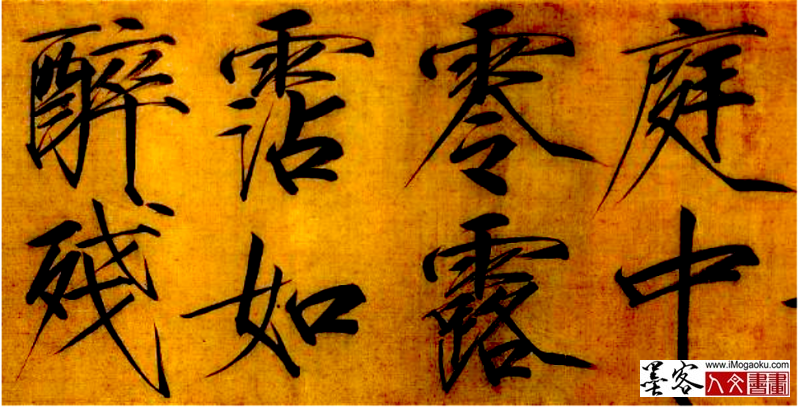 庭中
零露
霑如
醉残
墨客
www.iMogaoku.com
人文書畫